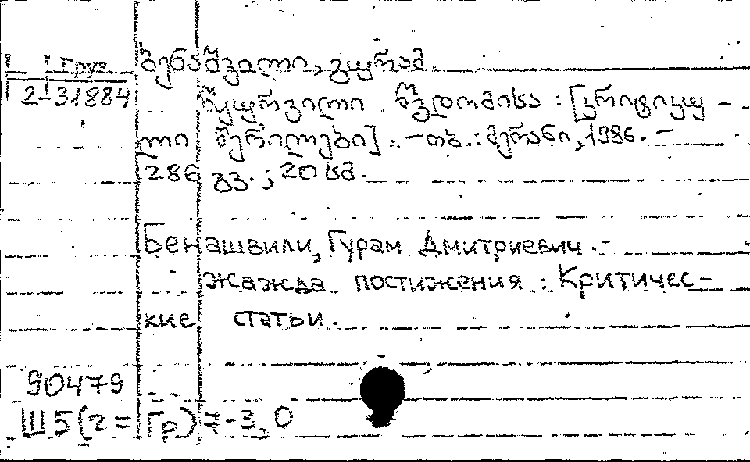 Груз. ბენაშვილი, გურამ.
2-31884 წყურვილი წვდომისა : [კრიტიკუ-
ლი წერილები]. - თბ. : მერანი, 1986. -
286 გვ. ; 20 სმ.
Бенашвили, Гурам Дмитриевич. -
Жажда постижения : Критичес-
кие статьи.
90479
Ш5(2=Гр)7-3,0